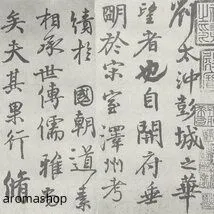 劉太沖彭城之華
望者也自開府垂
明於宗室澤州考
績於國朝道素
相承世傳儒雅尚
矣夫其果行脩
aromashop